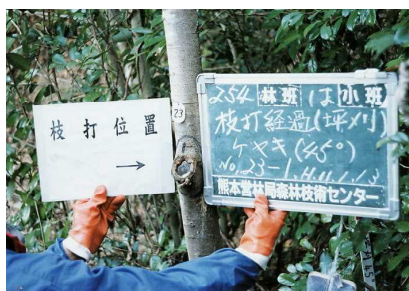 枝打位置
→
23
254 林班 は 小班
枝打経過(坪刈)
ケヤキ(45°)
No.23-1
熊本営林局森林技術センター